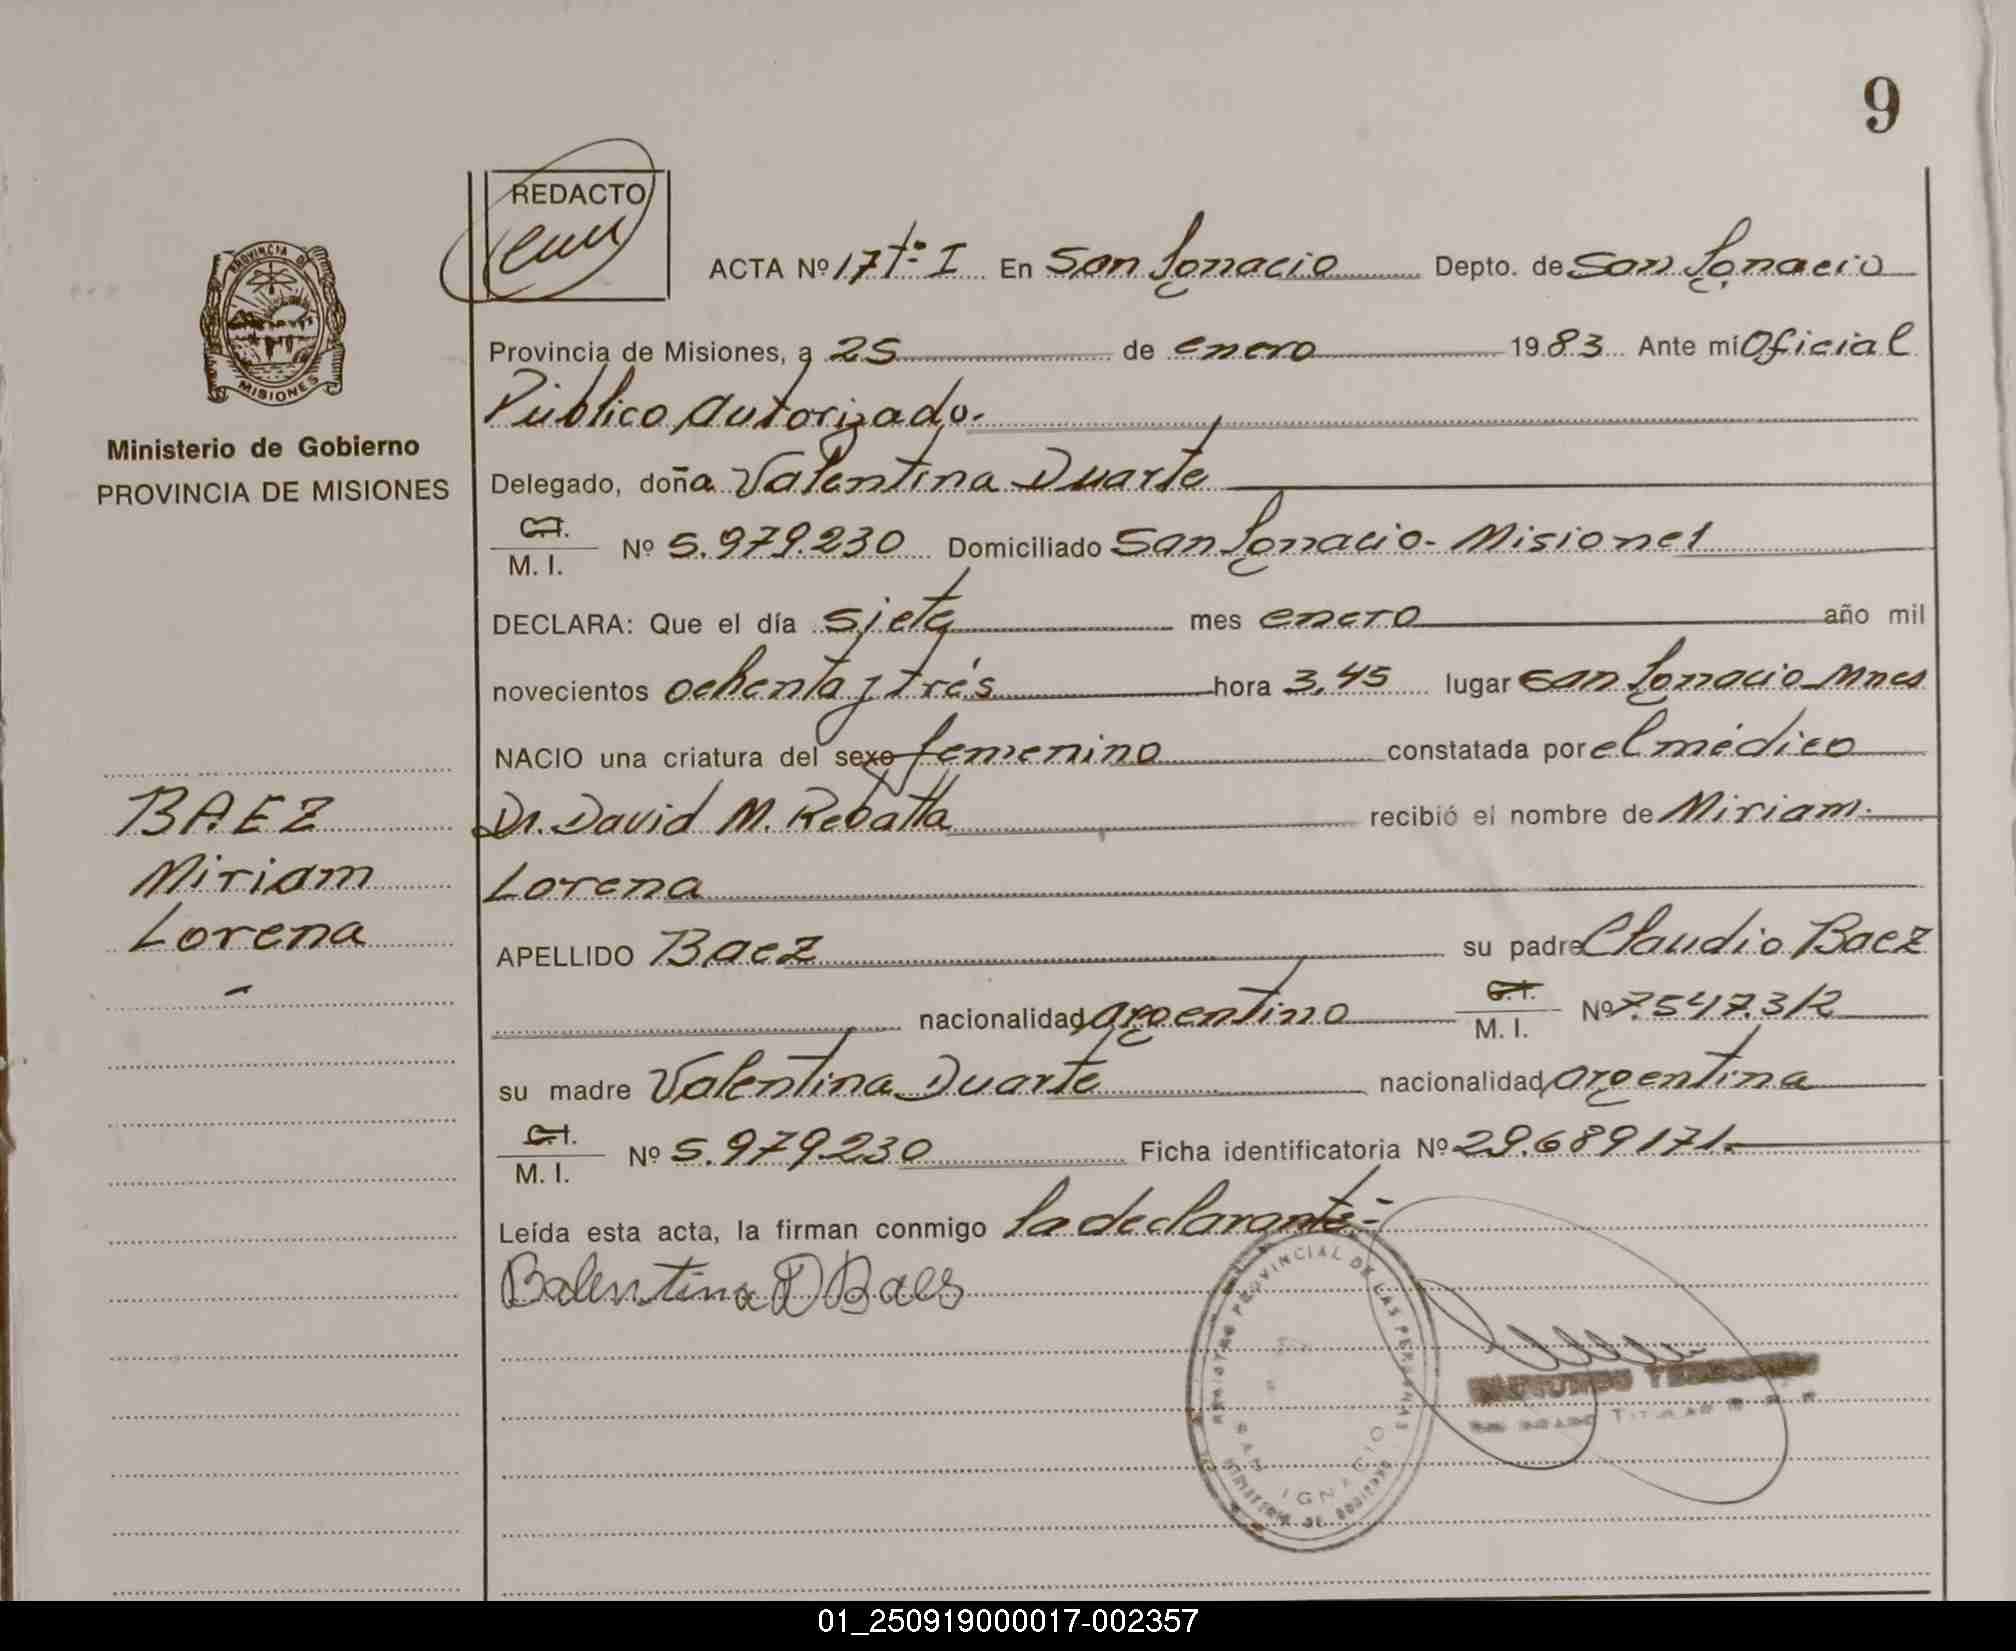 9
REDACTO
PROVINCIA DE
MISIONES
ACTA Nº 17 tº I En San Ignacio Depto. de San Ignacio
Provincia de Misiones, a 25 de enero 1983 Ante mi Oficial
Público Autorizado.
Ministerio de Gobierno
PROVINCIA DE MISIONES
Delegado, doña Valentina Duarte
C.I.
M. I. Nº 5.979.230 Domiciliado San Ignacio - Misiones
DECLARA: Que el día siete mes enero año mil
novecientos ochenta y trés hora 3,45 lugar San Ignacio Mnes
NACIO una criatura del sexo femenino constatada por el médico
Dr. David M. Rebatta recibió el nombre de Miriam
Lorena
BAEZ
Miriam
Lorena
APELLIDO Baez su padre Claudio Baez
nacionalidad argentino C.I.
M. I. Nº 7.547.312
su madre Valentina Duarte nacionalidad argentina
C.I.
M. I. Nº 5.979.230 Ficha identificatoria Nº 29.689171.
Leída esta acta, la firman conmigo la declarante.-
Balentina D Baes
REGISTRO PROVINCIAL DE LAS PERSONAS
SAN IGNACIO
MINISTERIO DE GOBIERNO
TITULAR
01_250919000017-002357